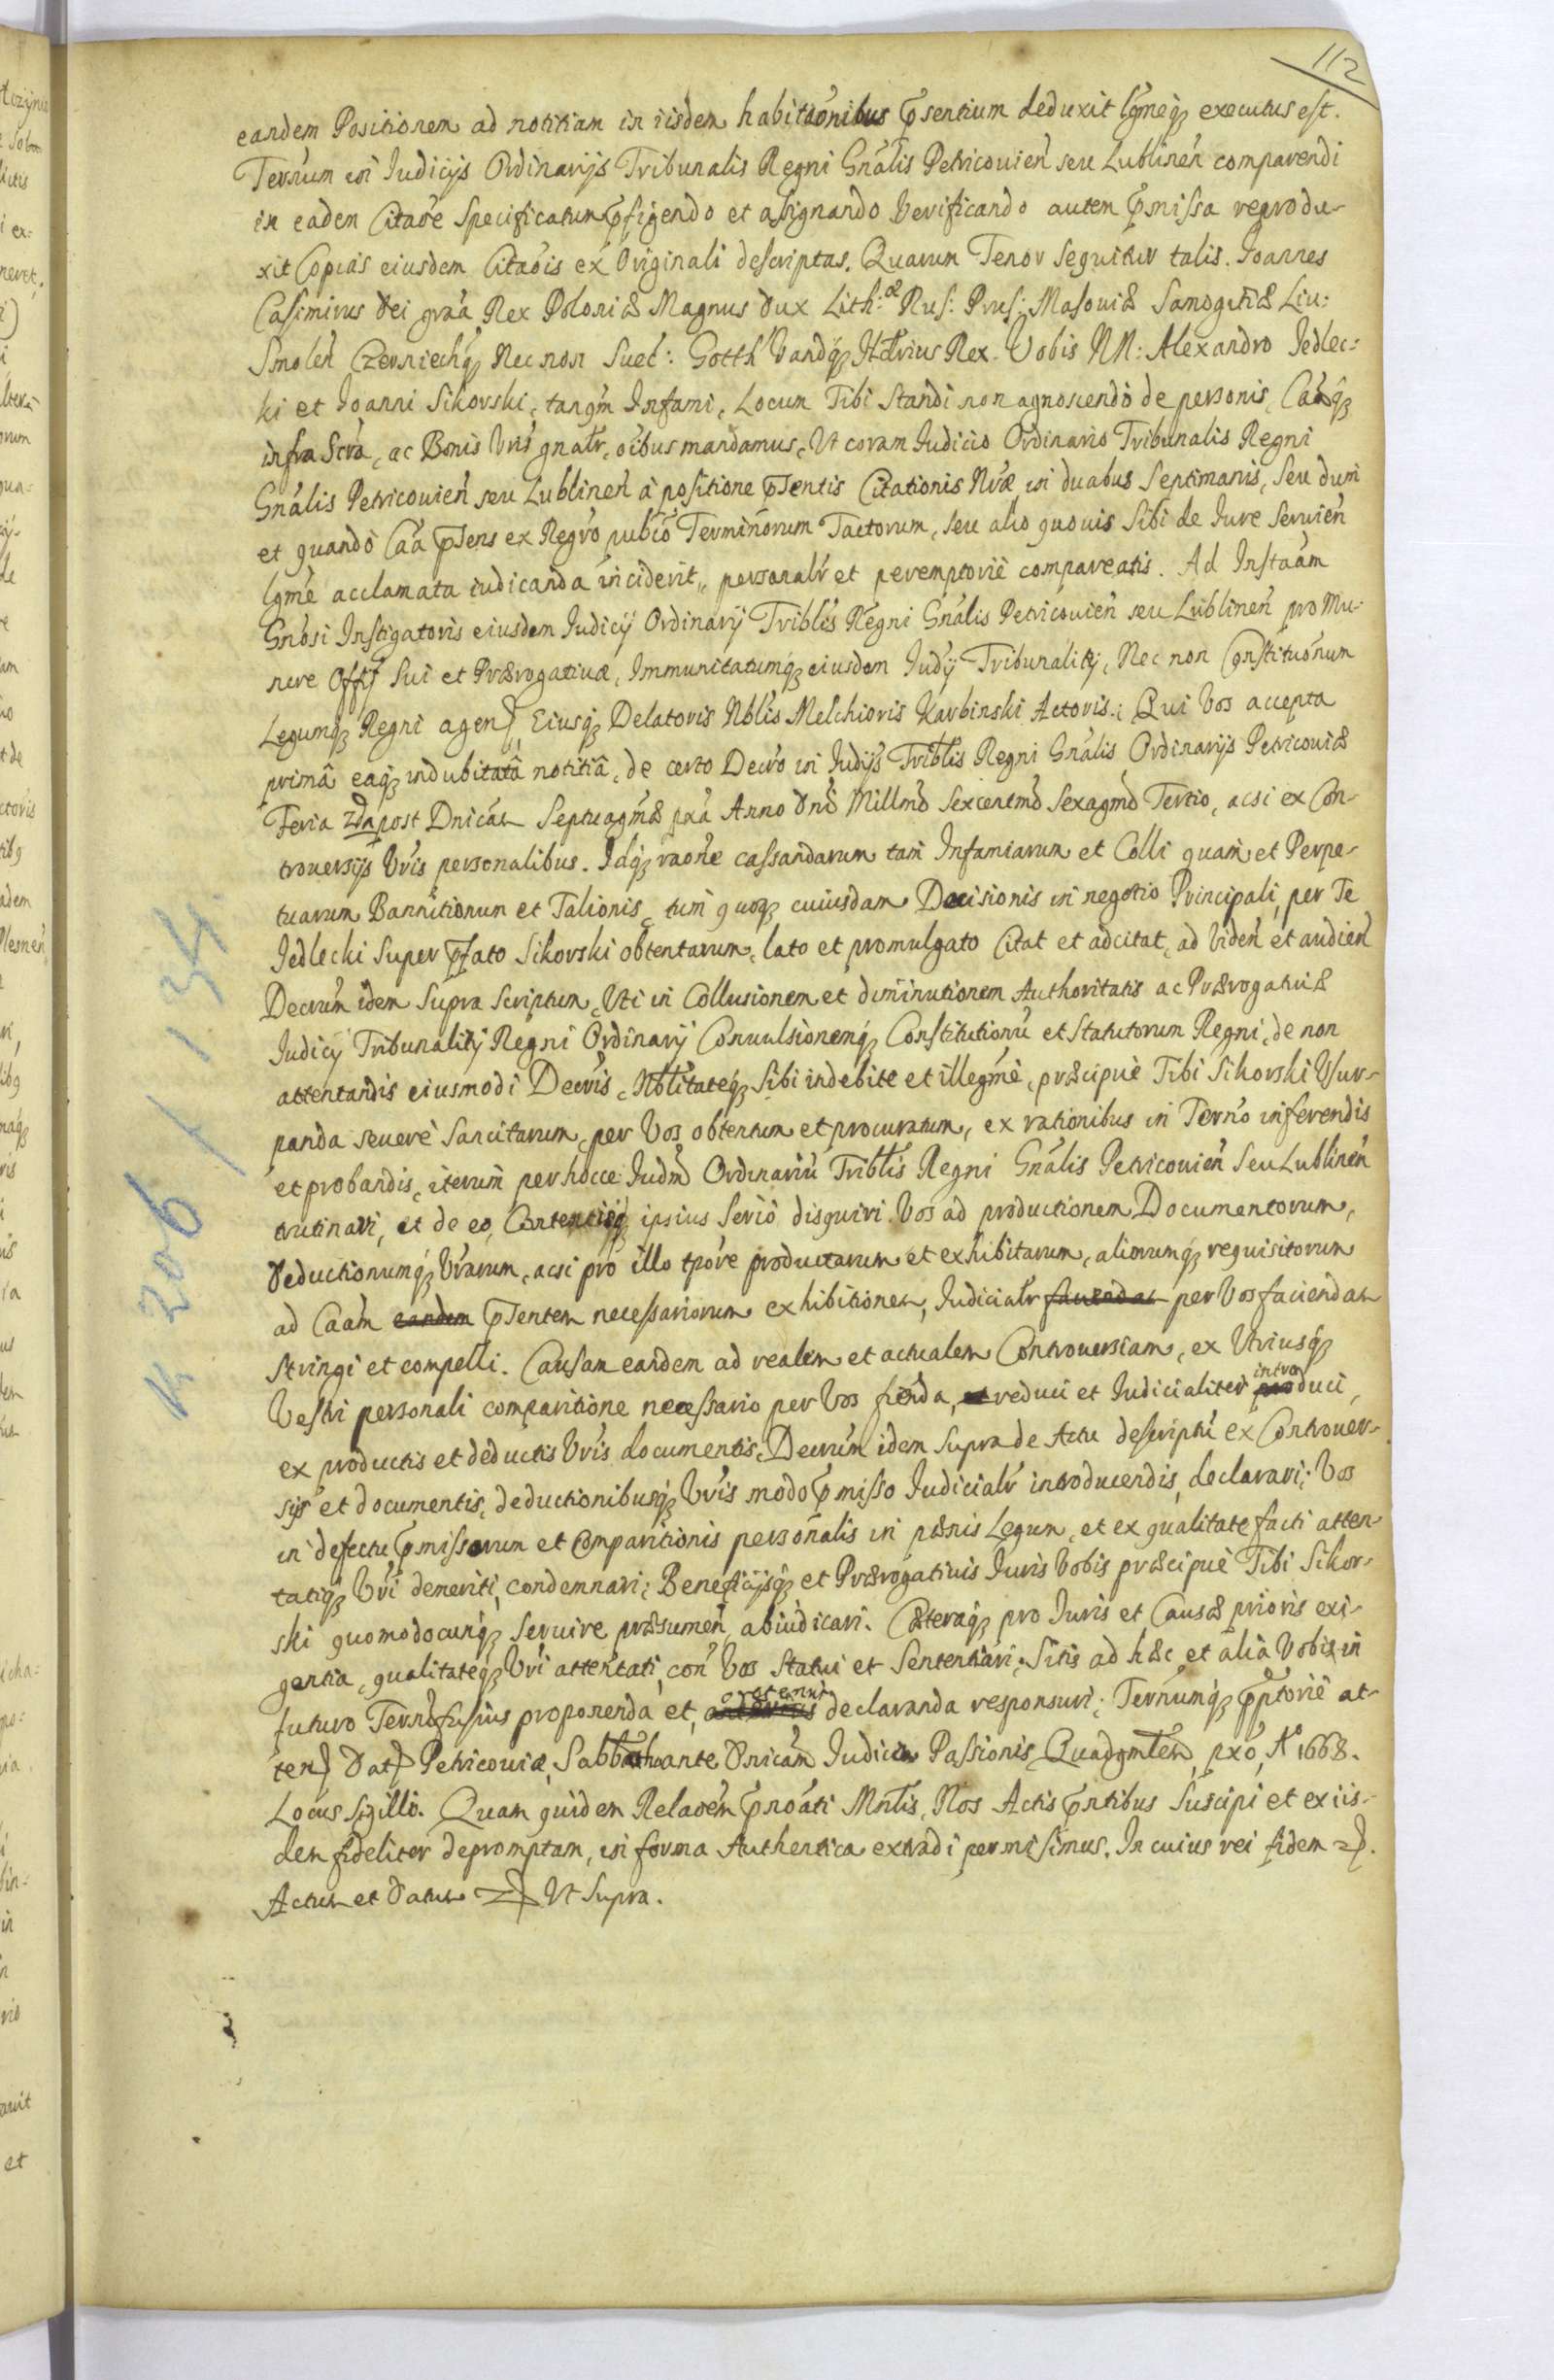 112
eandem Positionem ad notitiam in iisdem habitaõnibus p̃sentium deduxit lgmeq; executus est.
Ternum in Iudicijs Ordinarijs Tribunalis Regni Gnãlis Petricouien̄ seu Lublinen̄ comparendi
in eadem Citaõe specificatum p̃figendo et assignando Verificando autem p̃missa reprodu-
xit Copias eiusdem Citaõis ex Originali descriptas. Quarum Tenor sequitur talis. Joannes
Casimirus Dei grãa Rex Poloniæ Magnus Dux Lith:æ Rus: Prus: Masouiæ Samogitiæ Liu:
Smolen̄ Czerniechq; Nec non Suec: Gotth Vandq; Hærius Rex. Vobis NN: Alexandro Jedlec-
ki et Joanni Sikorski, tanqm̃ Infami, Locum Tibi standi non agnoscendo de personis, Caãq;
infra Scra, ac Bonis Vris gnalr̃, oĩbus mandamus, Ut coram Iudicio Ordinario Tribunalis Regni
Gnãlis Petricouien̄ seu Lublinen̄ à positione p̃sentis Citationis Nræ in duabus Septimanis, seu dum
et quando Caã p̃sens ex Regrõ publcõ Terminorum Tactorum, seu alio quouis sibi de Iure seruien̄
lgmè acclamata iudicanda inciderit, personalr̃ et peremptoriè compareatis. Ad Instaãm
Gnõsi Instigatoris eiusdem Iudicij Ordinarij Triblis Regni Gnãlis Petricouien̄ seu Lublinen̄ pro Mu-
nere Offij sui et Prærogatiuæ, Immunitatumq; eiusdem Iudij Tribunalitij, Nec non Constituõnum
Legumq; Regni agen̄ Eiusq; Delatoris Nblis Melchioris Karbinski Actoris; Qui Vos accepta
primâ eaq; indubitatâ notitiâ, de certo Decrõ in Iudijs Triblis Regni Gnãlis Ordinarijs Petricouiæ
Feria 2da post Dnicam Septuagmæ pxa Anno Dni Millmo Sexcentmo Sexagmo Tertio, acsi ex Con-
trouersijs Vris personalibus. Idq; raõne cassandarum tam Infamiarum et Colli quam et Perpe-
tuarum Bannitionum et Talionis, tum quoq; cuiusdam Decisionis in negotio Principali, per Te
Jedlecki super p̃fato Sikorski obtentarum, lato et promulgato Citat et adcitat, ad Viden̄ et audien̄
Decrum idem supra scriptum, Uti in Collusionem et diminutionem Authoritatis ac Prærogatiuæ
Iudicij Tribunalitij Regni Ordinarij Conuulsionemq; Constitutionũ et Statutorum Regni, de non
attentandis eiusmodi Decris, Nblitateq; sibi indebite et illegmè, præcipuè Tibi Sikorski Usur-
panda seuerè sancitarum, per Vos obtentum et procuratum, ex rationibus in Terno inferendis
et probandis, iterum per hocce Iudm Ordinariũ Triblis Regni Gnãlis Petricouien̄ Seu Lublinen̄
trutinari, et de eo, Contentisq; ipsius seriò disquiri. Vos ad productionem Documentorum,
Deductionumq; Vrarum, acsi pro illo tpõre productarum et exhibitarum, aliorumq; requisitorum
ad Caãm eandem p̃sentem necessariorum exhibitionem, Iudicialr̃ faciendam per Vos faciendam
stringi et compelli. Causam eandem ad realem et actualem Controuersiam, ex Vtriusq;
Vestri personali comparitione necessario per Vos fienda, et reduci et Iudicialiter produci introduci,
ex productis et deductis Vris documentis, Decrum idem supra de Actu descriptũ ex Controuer-
sijs et documentis, deductionibusq; Vris modo p̃misso Iudicialr̃ introducendis, declarari; Vos
in defectu p̃missorum et Comparitionis personalis in pœnis Legum, et ex qualitate facti atten-
tatiq; Vri demeriti, condemnari; Beneficijsq; et Prærogatiuis Iuris Vobis præcipuè Tibi Sikor-
ski quomodocunq; seruire præsumen̄ abiudicari. Cæteraq; pro Iuris et Causæ prioris exi-
gentia, qualitateq; Vri attentati, con̄ Vos statui et Sententiari; Sitis ad hæc et alia Vobis in
futuro Terno fusius proponenda et, oretenus declaranda responsuri; Ternumq; p̃ptoriè at-
ten̄ Dat Petricouiæ, Sabbatho ante Dnicam Iudica Passionis Quadgmlem pxõ, Aº 1668.
Locus Sigilli. Quam quidem Relaõem p̃noãti Mnlis, Nos Actis p̃ntibus Suscipi et ex iis-
dem fideliter depromptam, in forma Authentica extradi permisimus. In cuius rei fidem
Actum et Datum Ut Supra.
K 206 / 134.